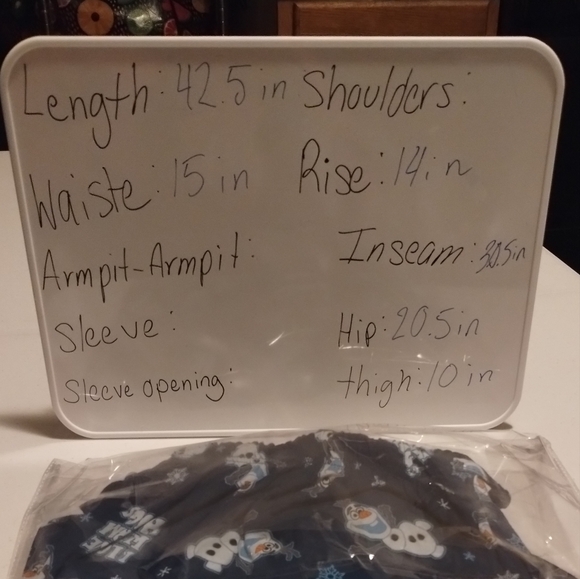 Length: 42.5 in Shoulders:
Waiste: 15 in Rise: 14 in
Armpit-Armpit: Inseam: 30.5in
Sleeve: Hip: 20.5in
Sleeve opening: thigh: 10 in